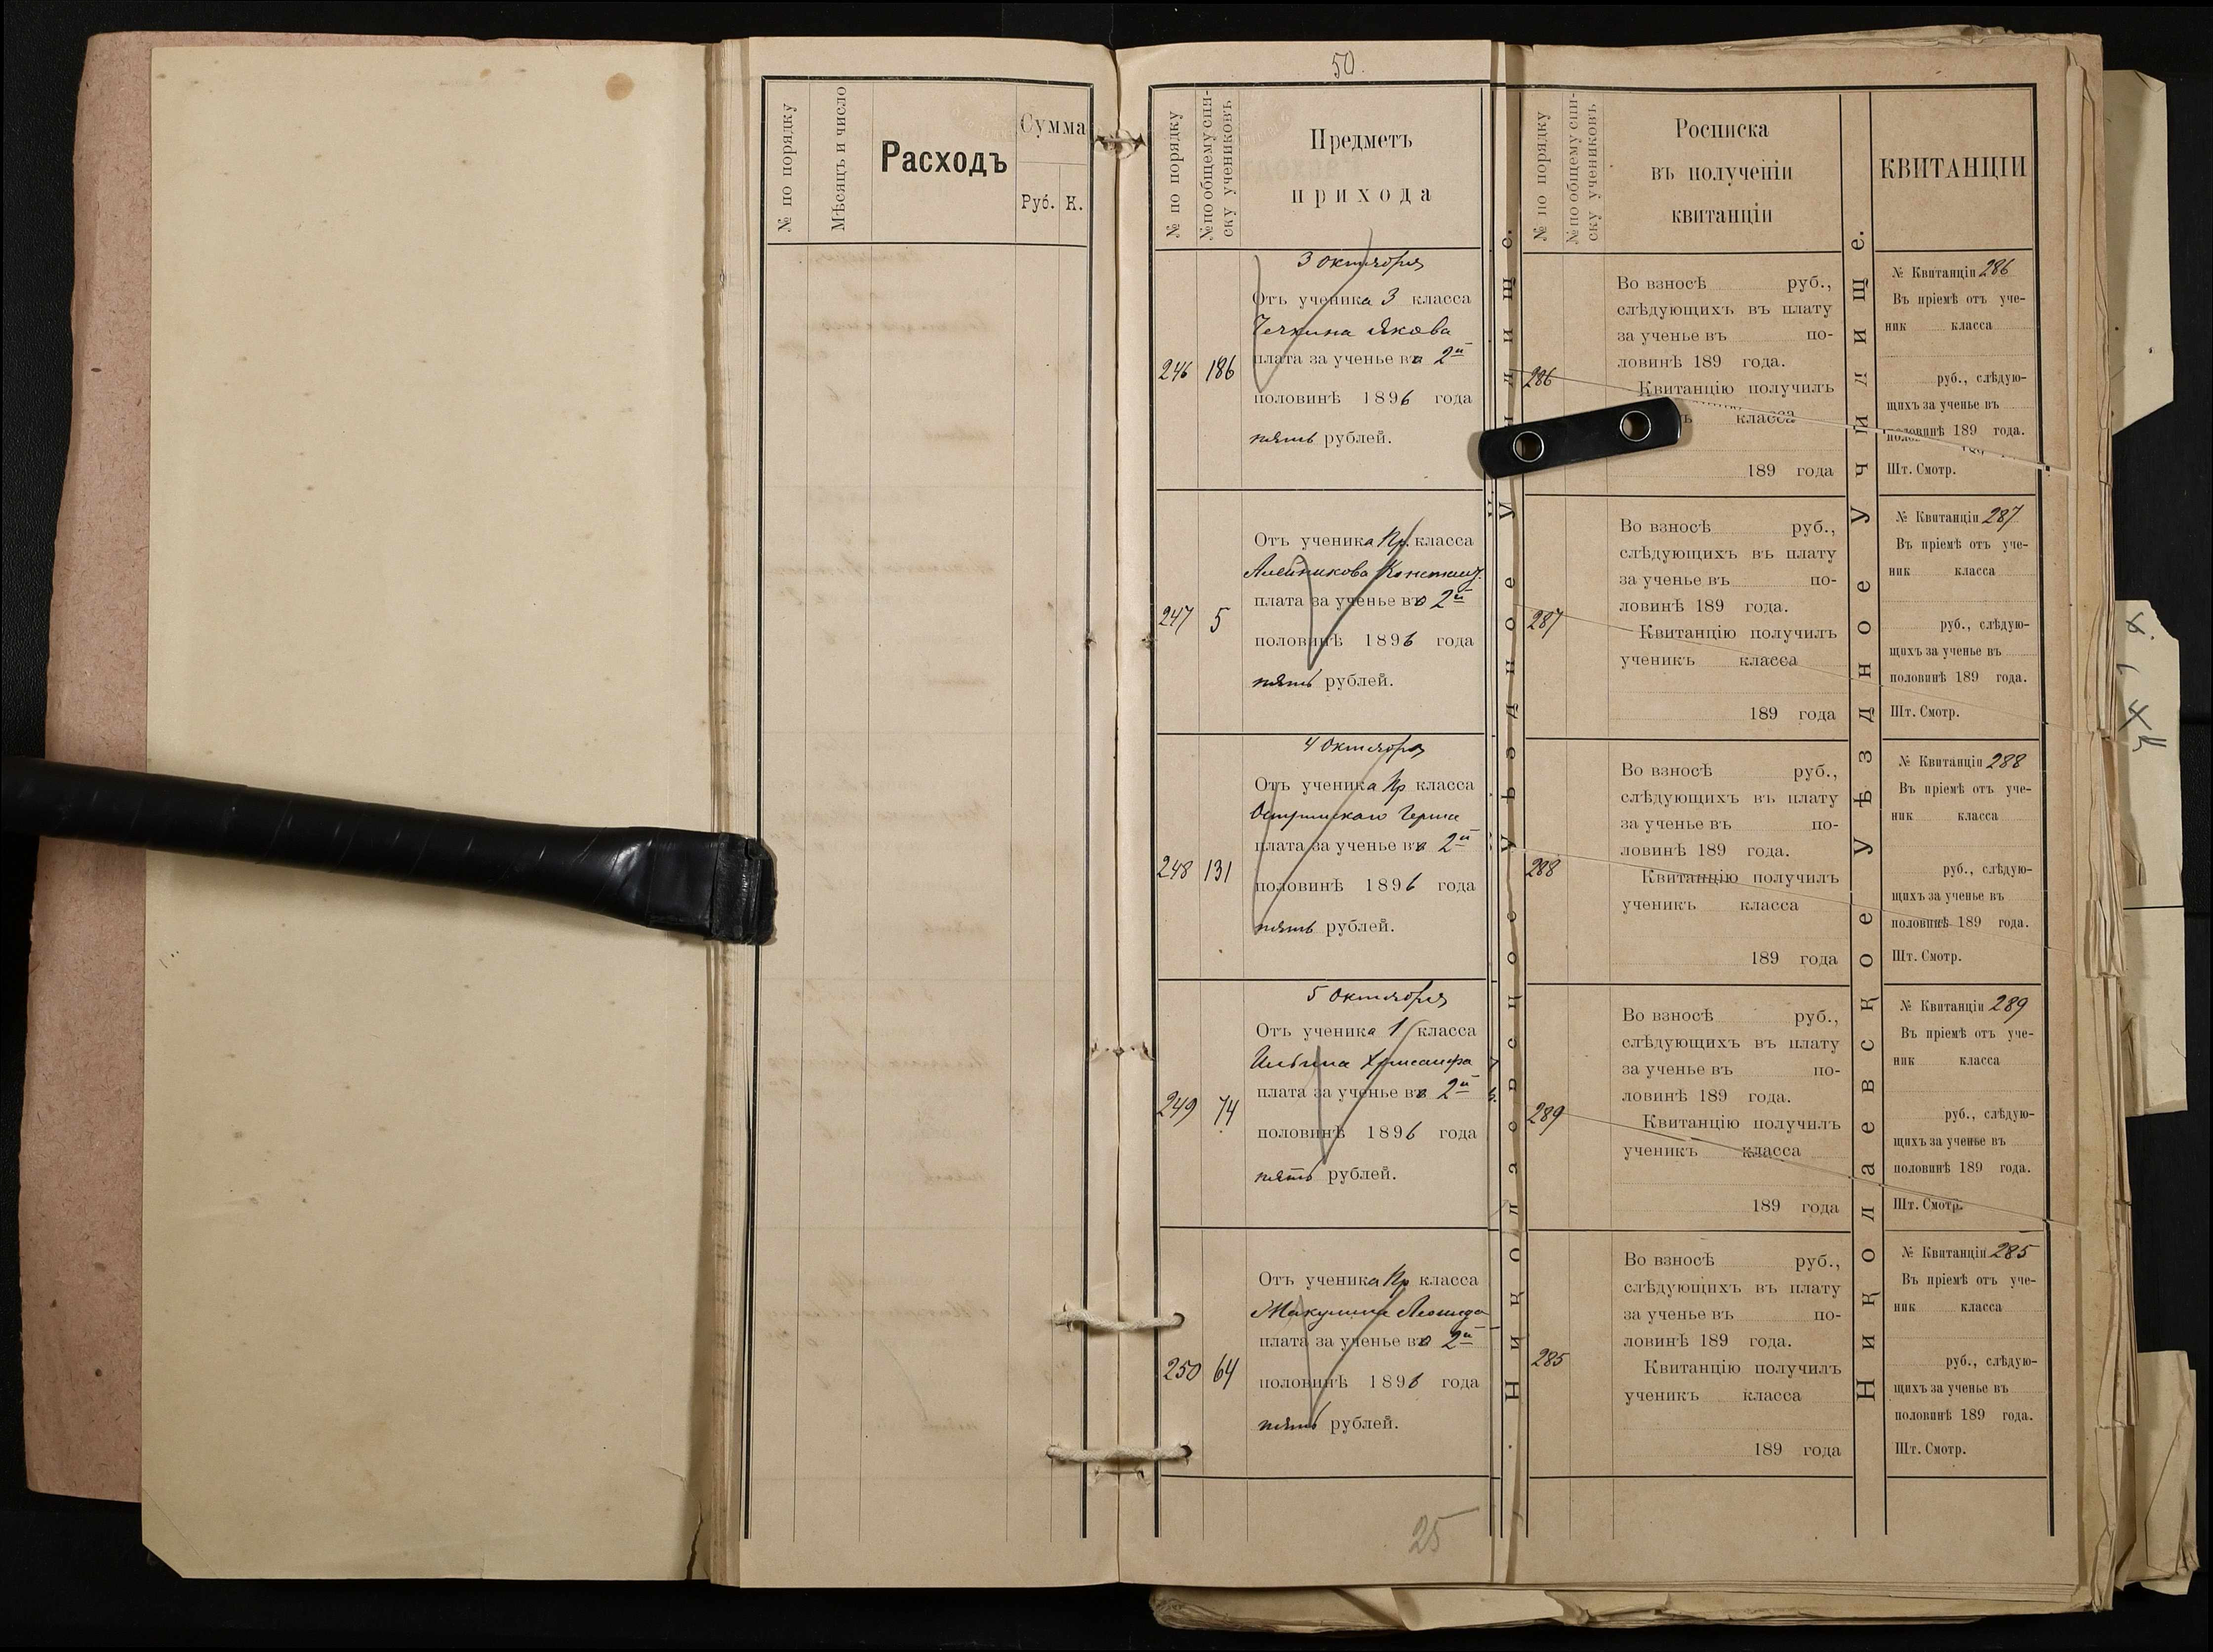 50.
№ по порядку
Мѣсяцъ и число
Расходъ
Сумма
Руб. К.
№ по порядку
№ по общему спи-
ску учениковъ
Предметъ
прихода
3 октября
Отъ ученика 3 класса
Чечкина Якова
плата за ученье въ 2й
246 186
половинѣ 1896 года
пять рублей.
Отъ ученика Пр. класса
Алейникова Констант.
плата за ученье въ 2й
247 5
половинѣ 1896 года
пять рублей.
4 Октября
Отъ ученика Пр класса
плата за ученье въ 2й
248 131
половинѣ 1896 года
пять рублей.
5 Октября
Отъ ученика 1 класса
Ильина Хрисанфа
плата за ученье въ 2й
249 74
половинѣ 1896 года
пять рублей.
Отъ ученика Пр класса
Леонида
плата за ученье въ 2й
250 64
половинѣ 1896 года
пять рублей.
25
Николаевское Уѣздное Училище.
№ по порядку
№ по общему спи-
ску учениковъ
Росписка
въ полученіи
квитанціи
Во взносѣ руб.,
слѣдующихъ въ плату
за ученье въ по-
ловинѣ 189 года.
286
Квитанцію получилъ
ъ класса
189 года
Во взносѣ руб.,
слѣдующихъ въ плату
за ученье въ по-
ловинѣ 189 года.
287
Квитанцію получилъ
ученикъ класса
189 года
Во взносѣ руб.,
слѣдующихъ въ плату
за ученье въ по-
ловинѣ 189 года.
288
Квитанцію получилъ
ученикъ класса
189 года
Во взносѣ руб.,
слѣдующихъ въ плату
за ученье въ по-
ловинѣ 189 года.
289
Квитанцію получилъ
ученикъ класса
189 года
Во взносѣ руб.,
слѣдующихъ въ плату
за ученье въ по-
ловинѣ 189 года.
285
Квитанцію получилъ
ученикъ класса
189 года
Николаевское Уѣздное Училище.
КВИТАНЦІИ
№ Квитанціи 286
Въ пріемѣ отъ уче-
ник класса
руб., слѣдую-
щихъ за ученье въ
половинѣ 189 года.
Шт. Смотр.
№ Квитанціи 287
Въ пріемѣ отъ уче-
ник класса
руб., слѣдую-
щихъ за ученье въ
половинѣ 189 года.
Шт. Смотр.
№ Квитанціи 288
Въ пріемѣ отъ уче-
ник класса
руб., слѣдую-
щихъ за ученье въ
половинѣ 189 года.
Шт. Смотр.
№ Квитанціи 289
Въ пріемѣ отъ уче-
ник класса
руб., слѣдую-
щихъ за ученье въ
половинѣ 189 года.
Шт. Смотр.
№ Квитанціи 285
Въ пріемѣ отъ уче-
ник класса
руб., слѣдую-
щихъ за ученье въ
половинѣ 189 года.
Шт. Смотр.